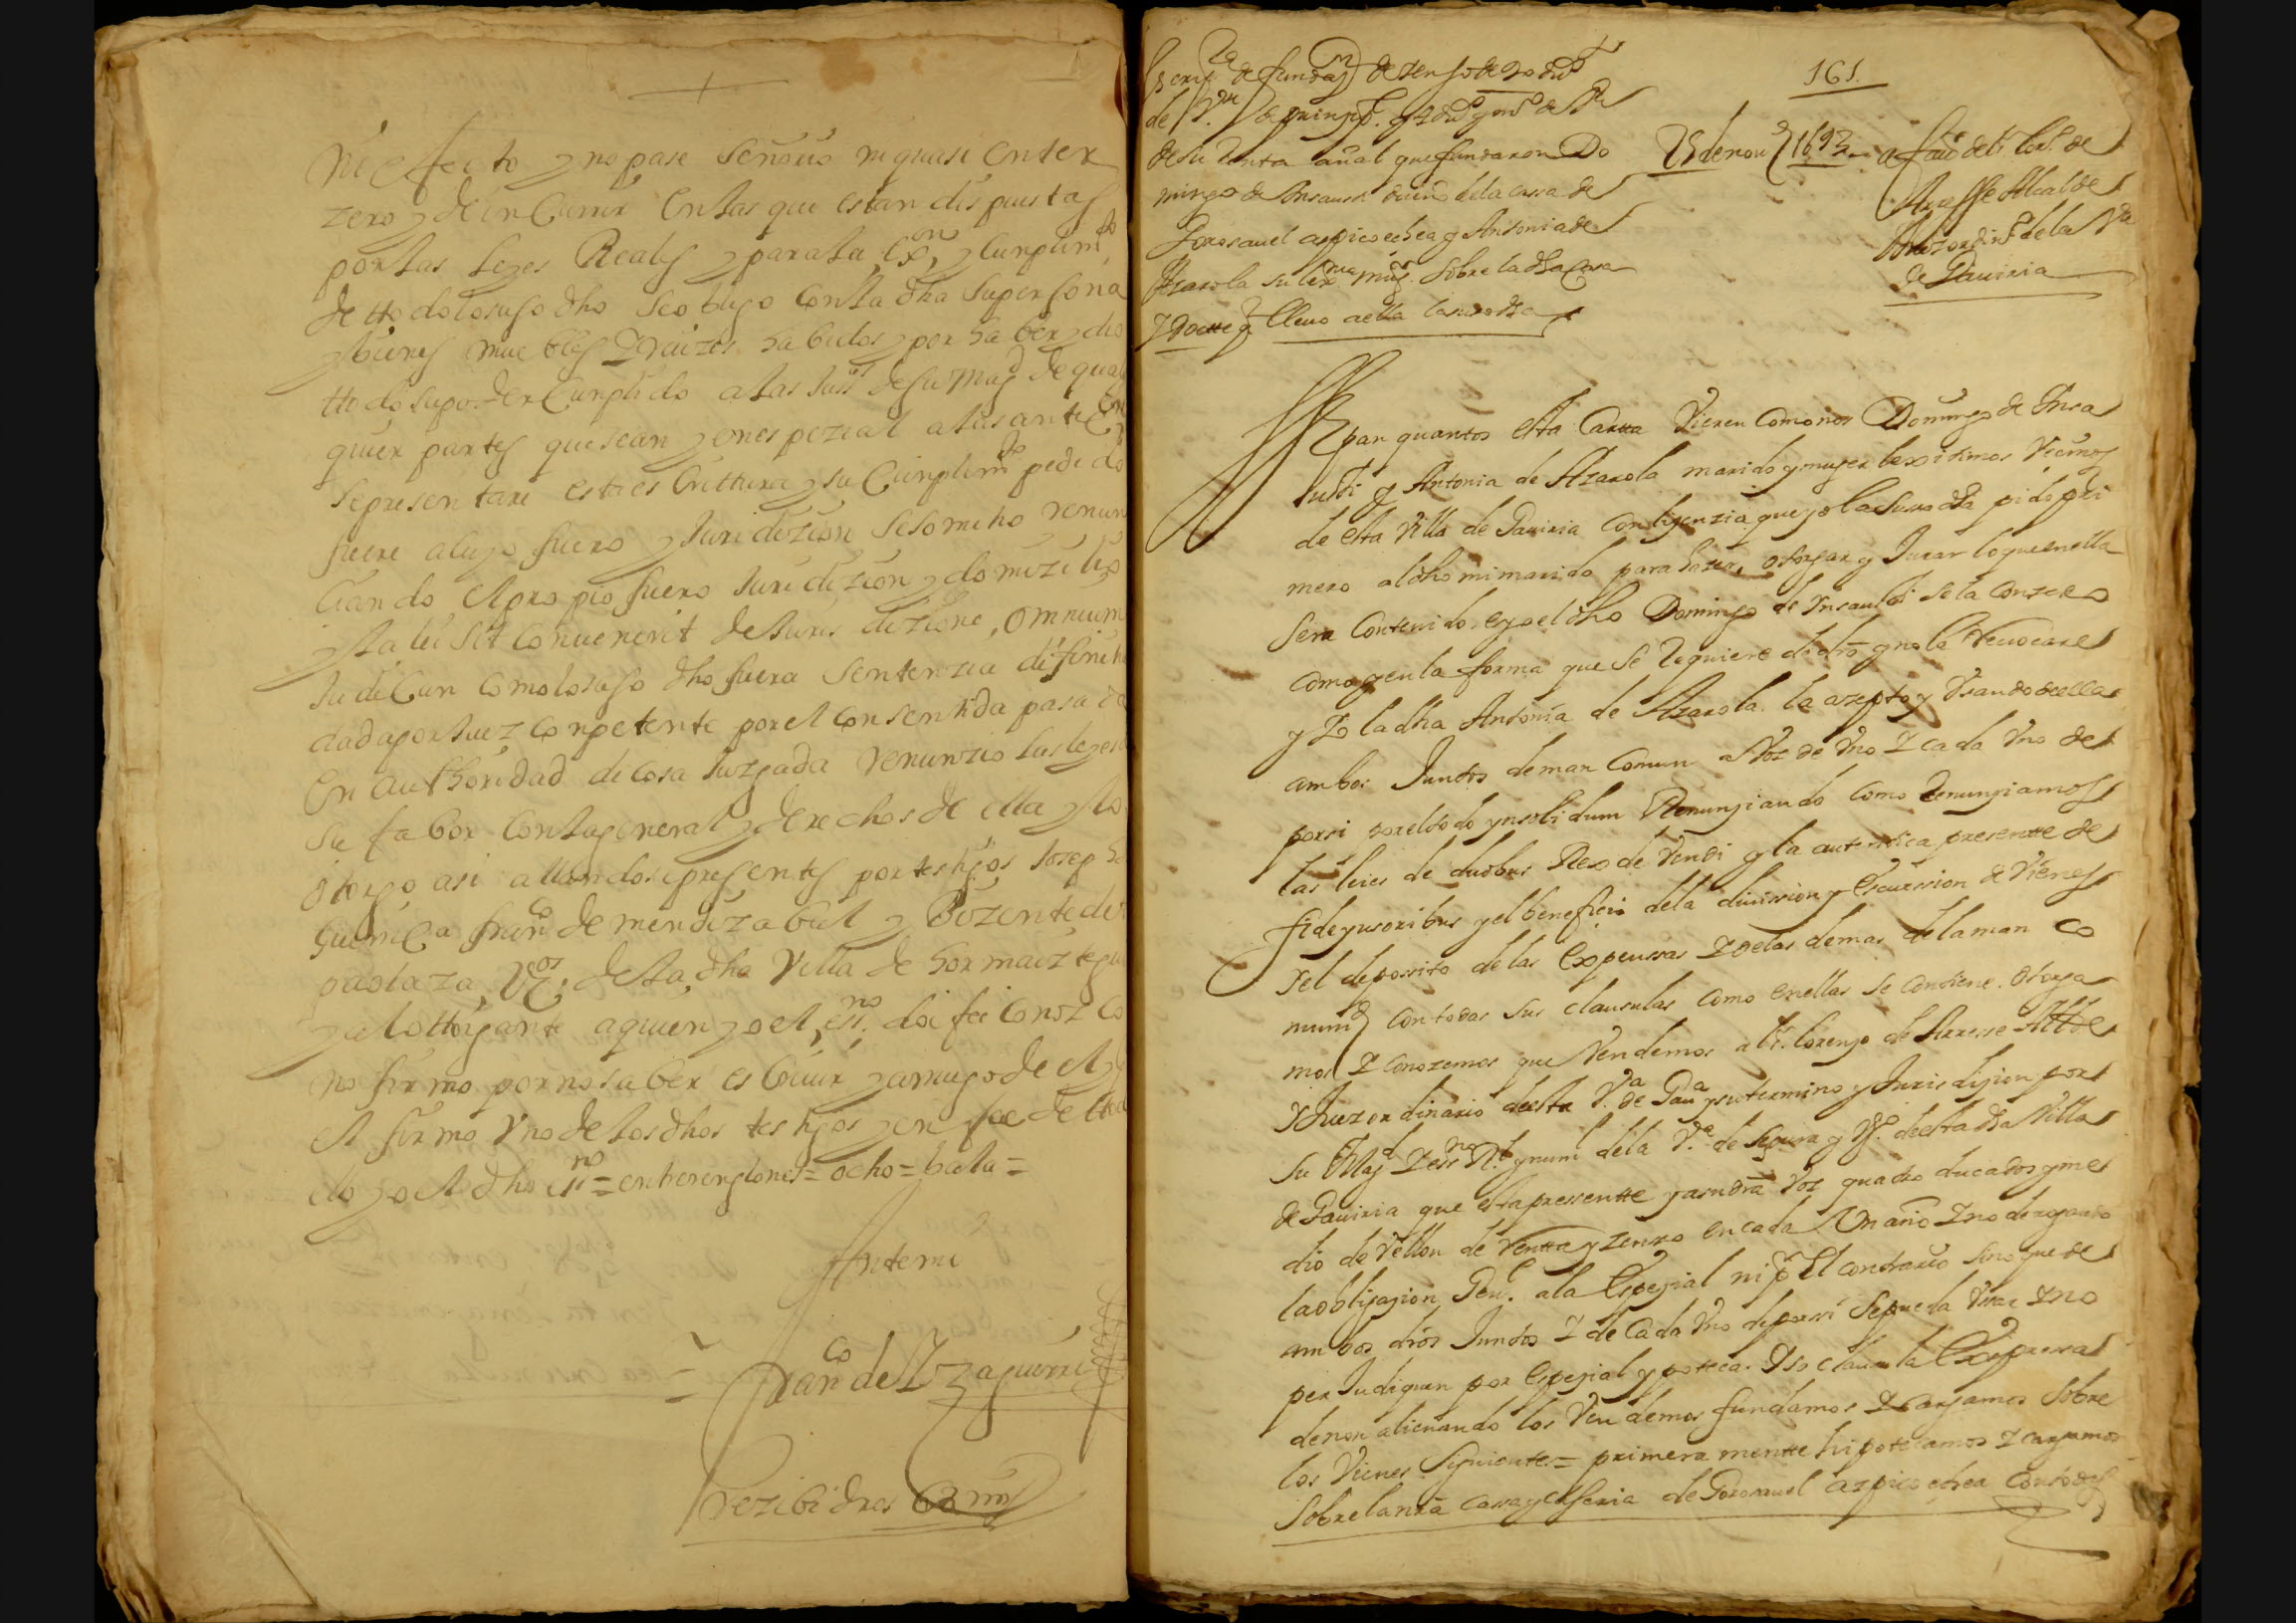 ni efecto y no pase señorio ni quasi enter
zero y de incurrir en las que estan dispuestas
por las leyes Reales y para la exon y cunplimto
de tto do lo suso dho se obligo con la dha su persona
y bienes muebles y Raizes habidos y por haber y dio
ttodo su poder cunplido a las Juss de su Magd de quales
quier partes que sean y en espezial a las ante quien
se presentare esta escrittura y su cunplimto pedido
fuere a cuyo fuero y Juridizion se sometio renun
ciando el propio fuero Juridizion y domizilio
y la lei sit convenerit de Juris dizione, omnium
Judicun como lo suso dho fuera sentenzia difiniti
dada por Juez conpetente por el consentida pasada
en authoridad de cosa Juzgada renunzio las leyes de
su fabor con la general y derechos de ella y lo
otorgo asi allandose presentes por testigos Joseph de
franco de mendizabal y Bizente de
vezos de la dha Villa de hormaiztegui
y al ottorgante a quien yo el essno doi fee conozco
no firmo por no saber escriuir y a ruego de el y
el firmo Vno de los dhos testigos y en fee de tto
ello yo el dho essno = entre renglones = ocho = bala =
Antemi
Franco de Yzaguirre
rezibi dros 68 mrs
161
Escripra de fundaon de zenso de 90 ducs
de Von de prinzipal y 4 ducs y mo de Von
de su Renta anual que fundaron Do
mingo de Insausti dueño de la cassa de
Gorosauel aspicoechea y Antonia de
Azarola su lexma muger sobre la dha Casa
25 de nouе 1693
a fauor de Lizdo Lorzo de
Aresse Alcalde
Juez ordino de la Va
de Gauiria
Sepan quantos esta Cartta Vieren como nos Domingo de Insa
usti y Antonia de Azarola marido y muger lexitimos Vecinos
de esta Villa de Gauiria con lizenzia que yo la susso dha pido pri
mero al dho mi marido para hazer, otorgar y Jurar lo que en ella
sera contenido, e yo el dho Domingo de Insausti se la conzedo
como y en la forma que se requiere de dro y no la Reuocare
y Yo la dha Antonia de Azarola la azepto y Vsando de ella
ambos Juntos de man comun a Voz de Vno y cada Vno de
por si por el todo ynsolidum Renunziando como Renunziamos
las leies de duobus Rex de Vendi y la autentica presentte de
fideyusoribus y el benefizio de la diuission y Escurssion de Vienes
y el depossito de las Expenssas y de las demas de la man co
munid con todas sus clausulas como en ellas se contiene. Otorga
mos y conozemos que Vendemos a Lizdo Lorenzo de Aresse Allde
y Juez ordinario de esta Va de Gaua y su termino y Jurisdizion por
su Magd y essno Rl y num de la Va de Segura y Vo de esta dha Villa
de Gauiria que esta pressentte quatro ducados y me
dio de Vellon de Rentta y zensso en cada Vn año y no derogando
la obligazion Genl a la Espezial ni por el contrario sino que de
ambos dros Juntos y de Cada Vno de por si se pueda Vsar y no
perJudiquen por Espezial ypoteca. y so clausula Expressa
de non alienando los Vendemos fundamos y cargamos sobre
los Vienes siguientes = primeramentte hipotecamos y cargamos
sobre la nra cassa y casseria de Gorosauel azpicoechea con todos